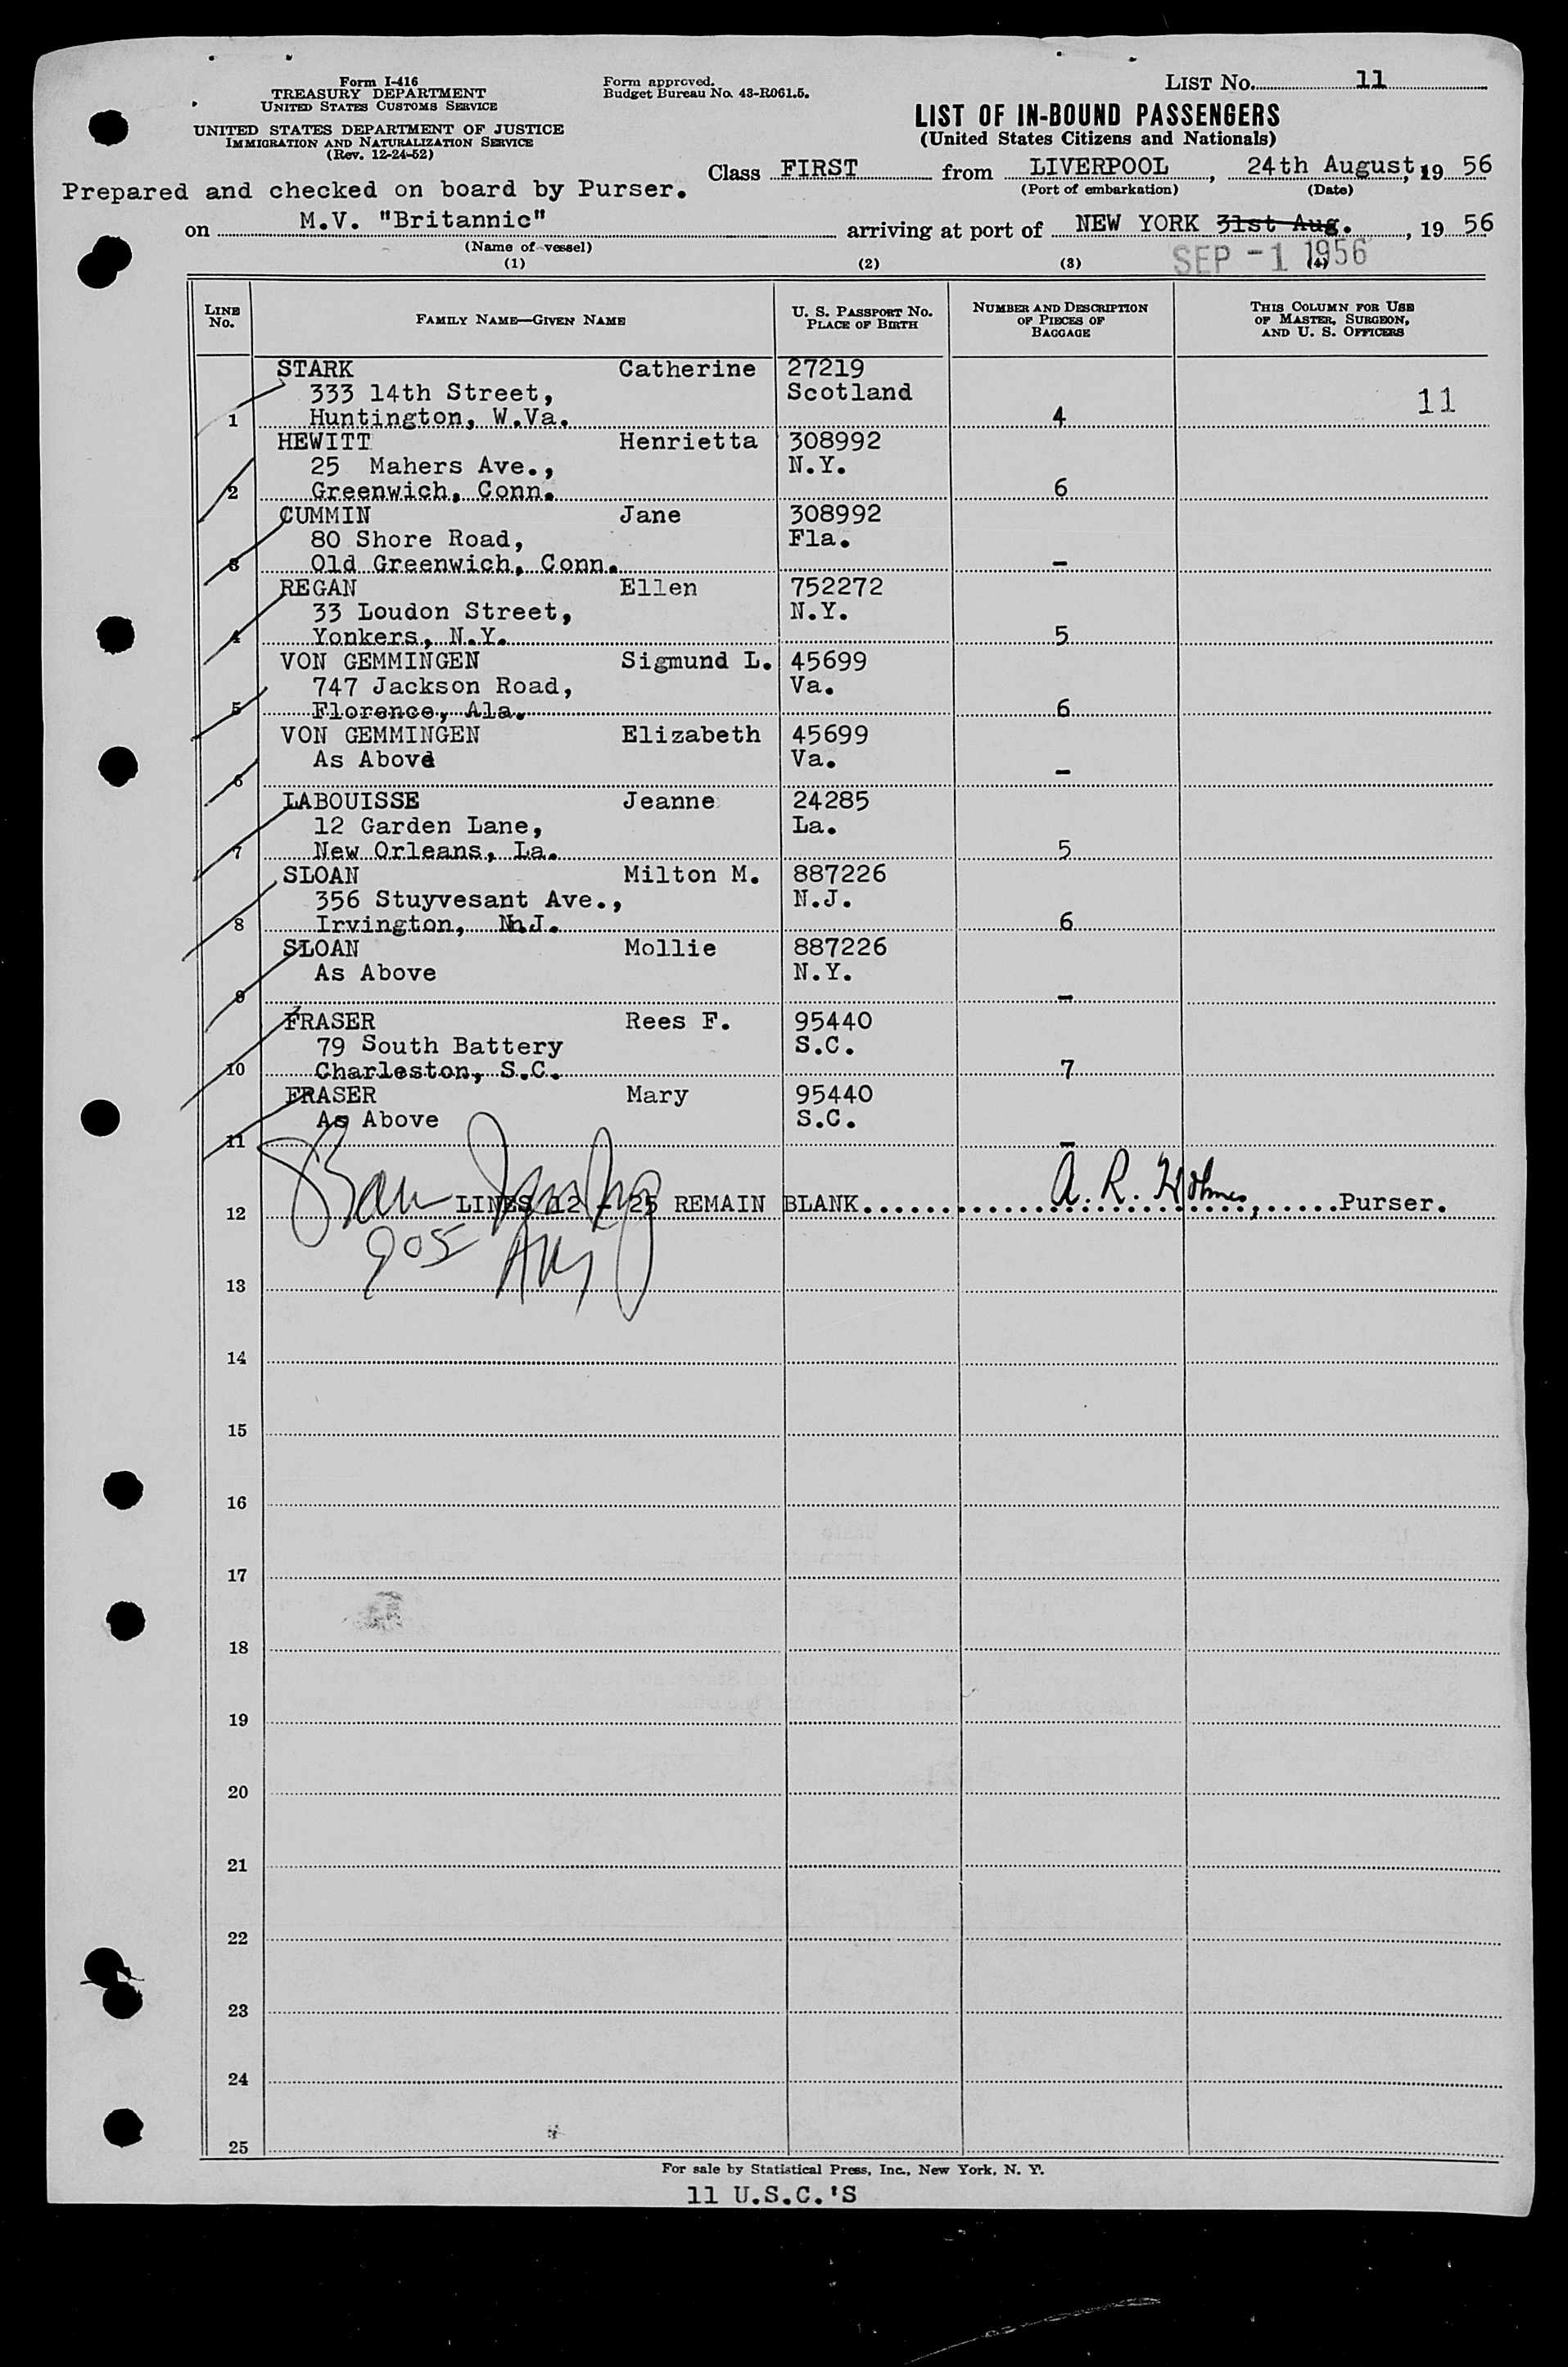 Form I-416
TREASURY DEPARTMENT
UNITED STATES CUSTOMS SERVICE
UNITED STATES DEPARTMENT OF JUSTICE
IMMIGRATION AND NATURALIZATION SERVICE
(Rev. 12-24-52)
Form approved.
Budget Bureau No. 43-R061.5.
LIST No. 11
LIST OF IN-BOUND PASSENGERS
(United States Citizens and Nationals)
Class FIRST from LIVERPOOL, 24th August, 19 56
(Port of embarkation) (Date)
Prepared and checked on board by Purser.
on M.V. "Britannic" arriving at port of NEW YORK 31st Aug., 19 56
(Name of vessel)
SEP -1 1956
(1) (2) (3) (4)
LINE No. FAMILY NAME—GIVEN NAME U. S. PASSPORT No. PLACE OF BIRTH NUMBER AND DESCRIPTION OF PIECES OF BAGGAGE THIS COLUMN FOR USE OF MASTER, SURGEON, AND U. S. OFFICERS
STARK Catherine 27219
333 14th Street, Scotland
1 Huntington, W.Va. 4 11
HEWITT Henrietta 308992
25 Mahers Ave., N.Y.
2 Greenwich, Conn. 6
CUMMIN Jane 308992
80 Shore Road, Fla.
3 Old Greenwich, Conn. -
REGAN Ellen 752272
33 Loudon Street, N.Y.
4 Yonkers, N.Y. 5
VON GEMMINGEN Sigmund L. 45699
747 Jackson Road, Va.
5 Florence, Ala. 6
VON GEMMINGEN Elizabeth 45699
As Above Va.
6 -
LABOUISSE Jeanne 24285
12 Garden Lane, La.
7 New Orleans, La. 5
SLOAN Milton M. 887226
356 Stuyvesant Ave., N.J.
8 Irvington, N.J. 6
SLOAN Mollie 887226
As Above N.Y.
9 -
FRASER Rees F. 95440
79 South Battery S.C.
10 Charleston, S.C. 7
FRASER Mary 95440
As Above S.C.
11 -
12 LINES 12 - 25 REMAIN BLANK A. R. Holmes, Purser.
905
13
14
15
16
17
18
19
20
21
22
23
24
25
For sale by Statistical Press, Inc., New York, N. Y.
11 U.S.C.'S